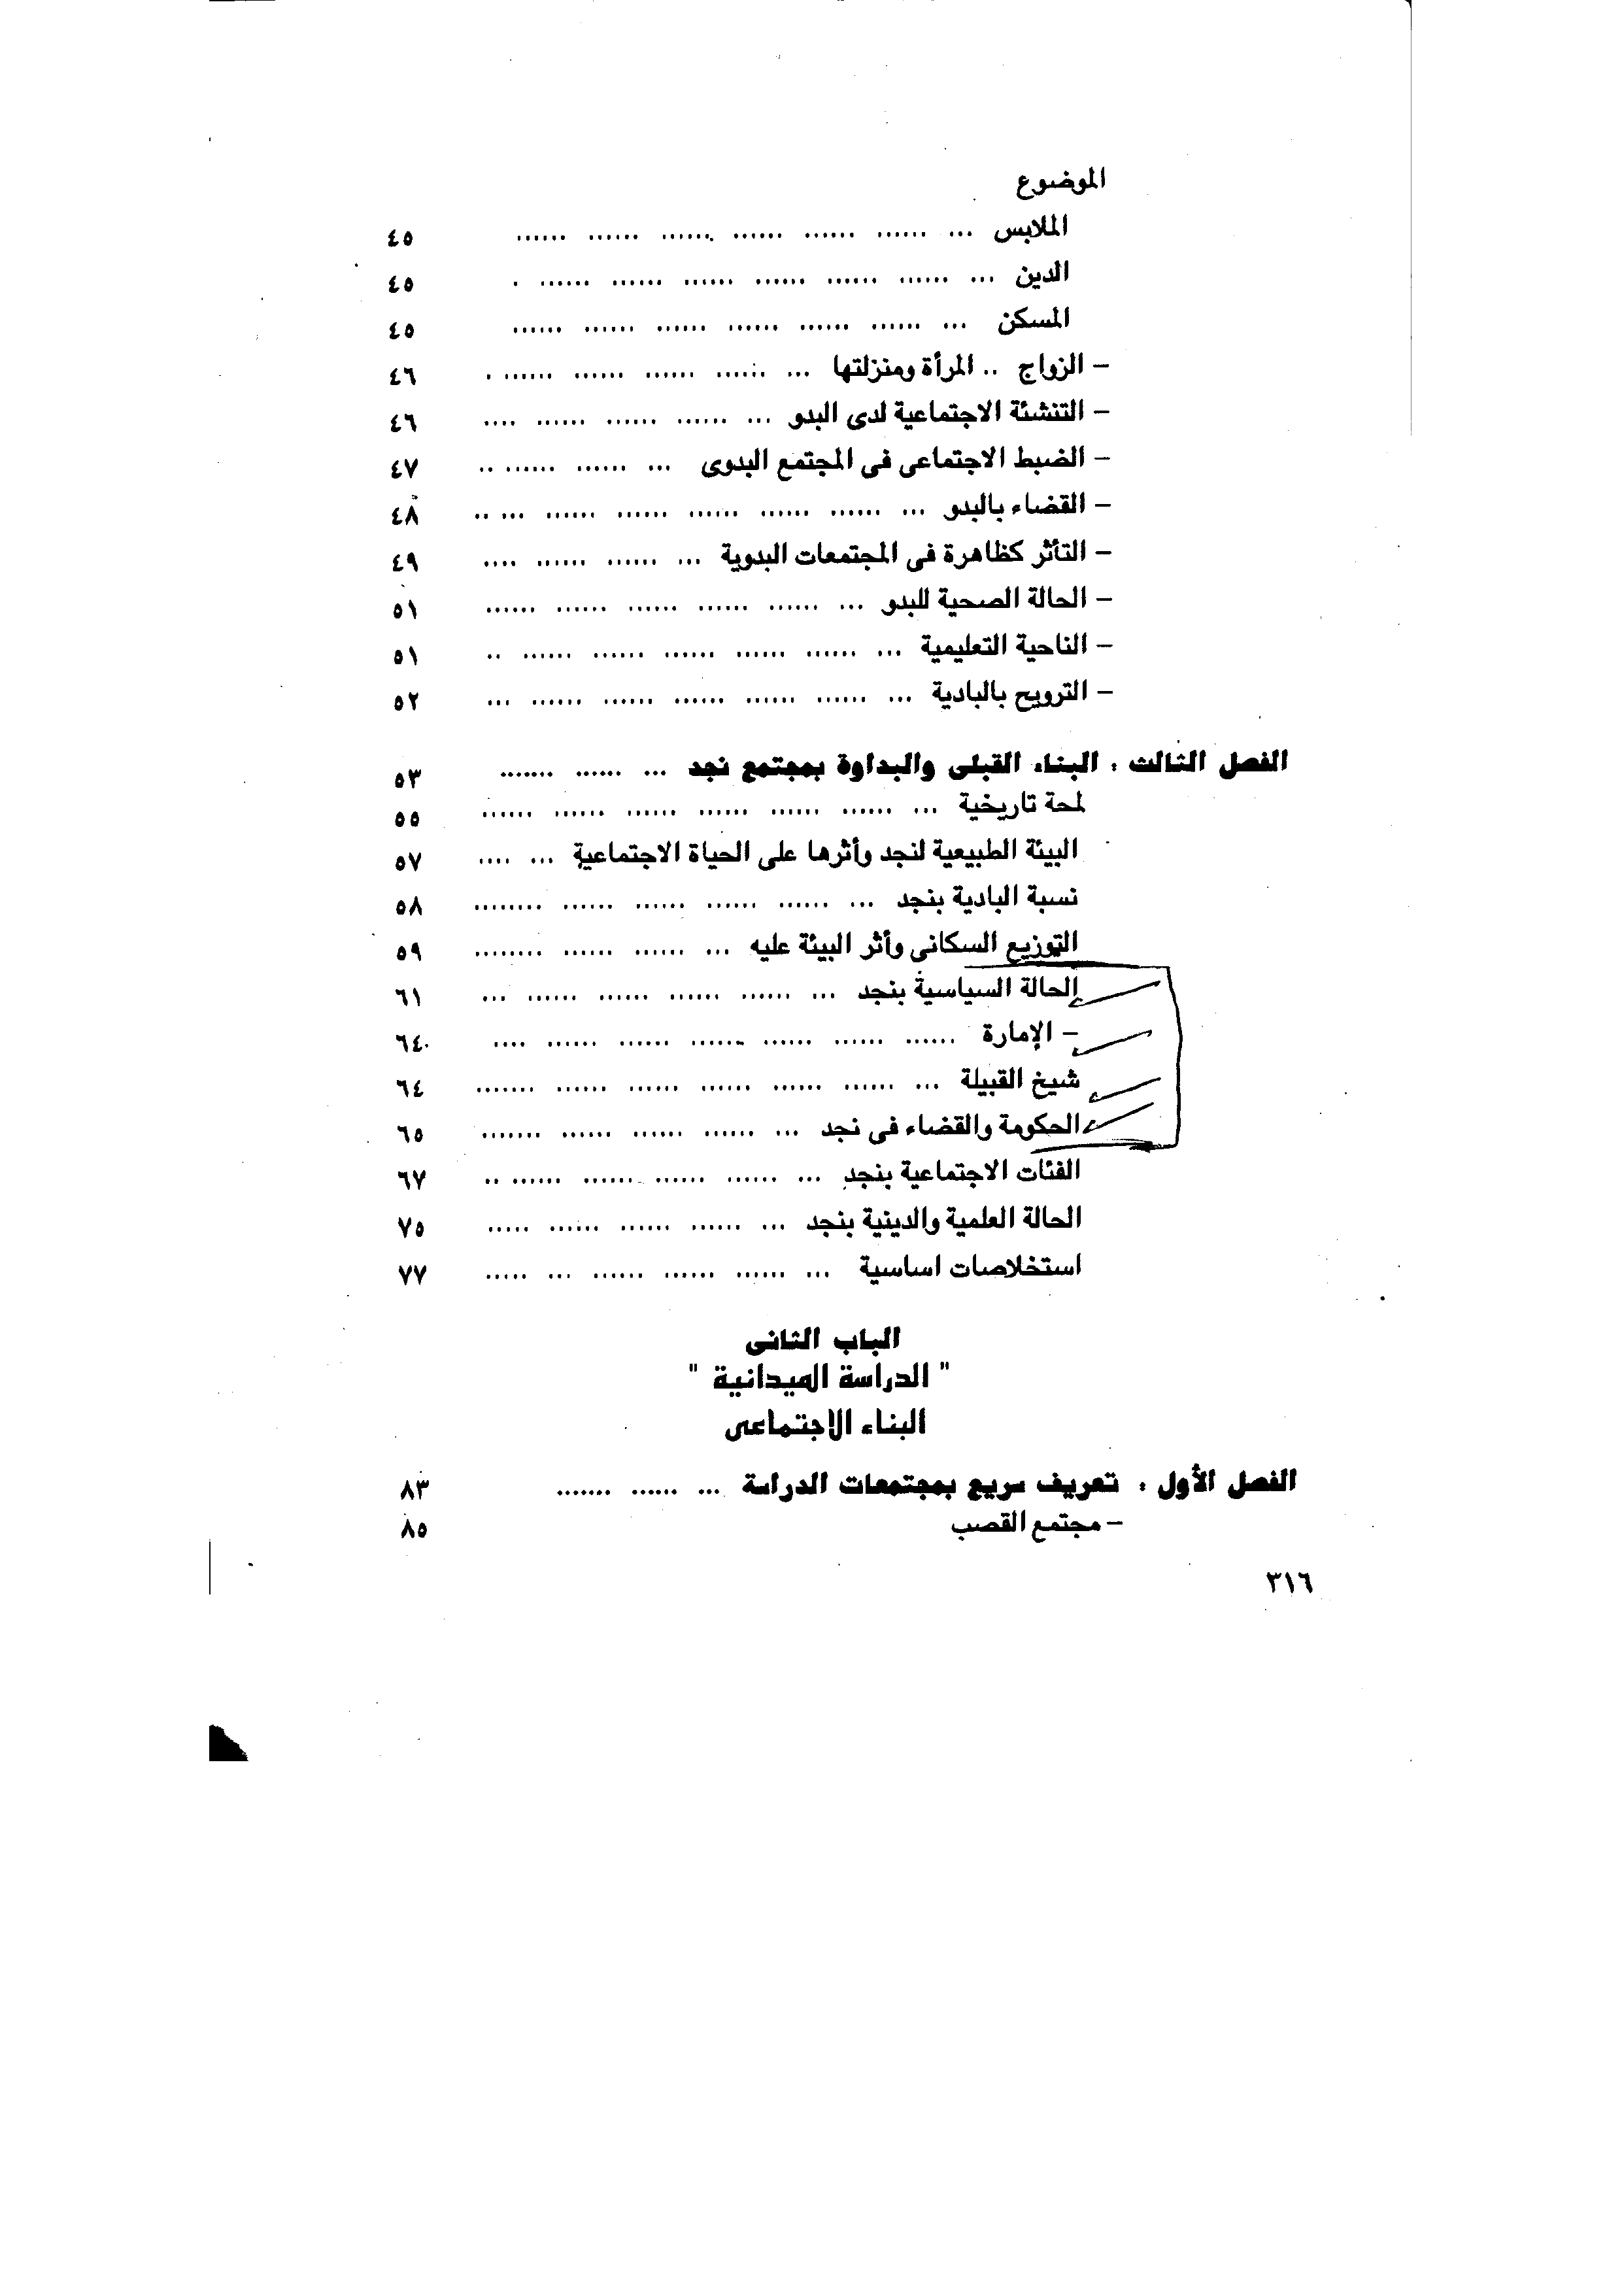 الموضوع
الملابس ... ...... ...... ...... ...... ...... ...... ٤٥
الدين ... ...... ...... ...... ...... ...... ...... . ٤٥
المسكن ... ...... ...... ...... ...... ...... ...... ٤٥
– الزواج .. المرأة ومنزلتها ... ...... ...... ...... ...... ...... . ٤٦
– التنشئة الاجتماعية لدى البدو ... ...... ...... ...... .... ٤٦
– الضبط الاجتماعى فى المجتمع البدوى ... ...... ...... .. ٤٧
– القضاء بالبدو ... ...... ...... ...... ...... ...... ... .. ٤٨
– التأثر كظاهرة فى المجتمعات البدوية ... ...... ...... .... ٤٩
– الحالة الصحية للبدو ... ...... ...... ...... ...... ...... ٥١
– الناحية التعليمية ... ...... ...... ...... ...... ...... .. ٥١
– الترويح بالبادية ... ...... ...... ...... ...... ...... ... ٥٢
الفصل الثالث : البناء القبلى والبداوة بمجتمع نجد ... ...... ....... ٥٣
لمحة تاريخية ... ...... ...... ...... ...... ...... ...... ٥٥
البيئة الطبيعية لنجد وأثرها على الحياة الاجتماعية ... .... ٥٧
نسبة البادية بنجد ... ...... ...... ...... ...... ........ ٥٨
التوزيع السكانى وأثر البيئة عليه ... ...... ...... ........ ٥٩
الحالة السياسية بنجد ... ...... ...... ...... ...... ... ٦١
– الإمارة ...... ...... ...... ...... ...... ...... .... ٦٤
شيخ القبيلة ... ...... ...... ...... ...... ...... ....... ٦٤
الحكومة والقضاء فى نجد ... ...... ...... ...... ....... ٦٥
الفئات الاجتماعية بنجد ... ...... ...... ...... ...... .. ٦٧
الحالة العلمية والدينية بنجد ... ...... ...... ...... ..... ٧٥
استخلاصات اساسية ... ...... ...... ...... ... ..... ٧٧
الباب الثانى
" الدراسة الميدانية "
البناء الاجتماعى
الفصل الأول : تعريف سريع بمجتمعات الدراسة ... ...... ....... ٨٣
– مجتمع القصب ٨٥
٣١٦